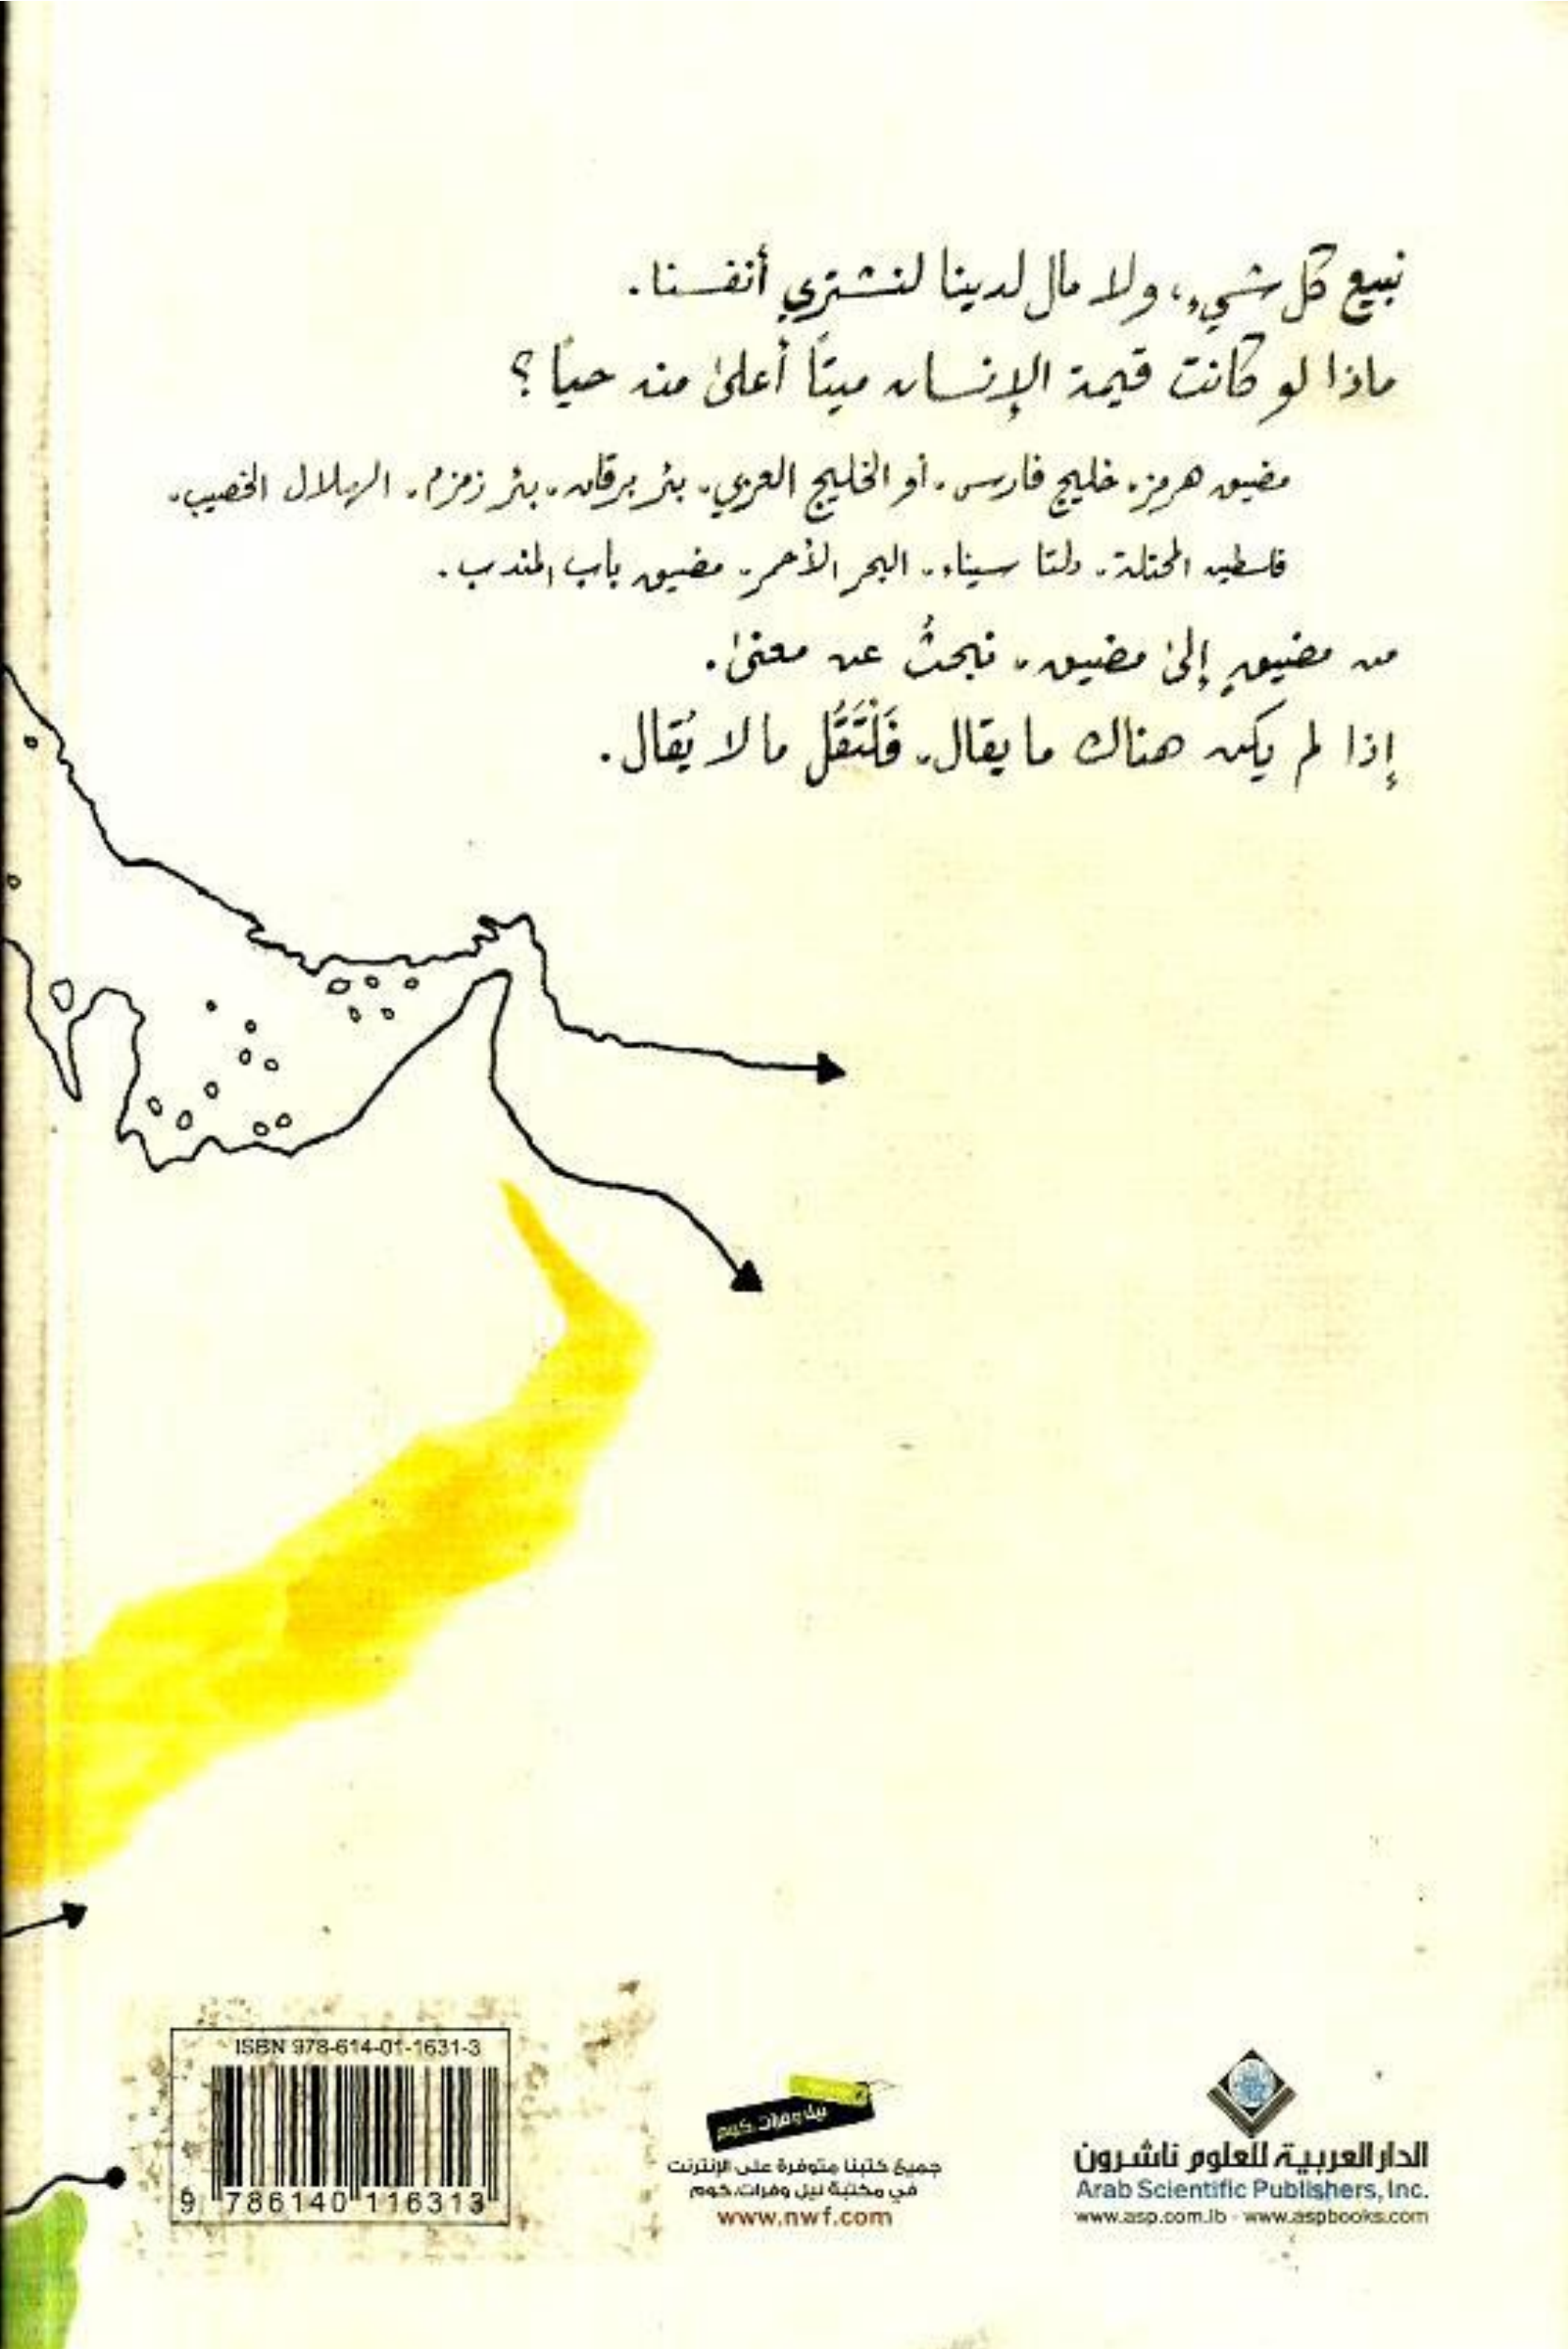 نبيع كل شيء، ولا مال لدينا لنشتري أنفسنا.
ماذا لو كانت قيمة الإنسان ميتًا أعلى منه حيًا؟
مضيق هرمز. خليج فارس. أو الخليج العربي. بئر برقان. بئر زمزم. الهلال الخصيب.
فلسطين المحتلة. دلتا سيناء. البحر الأحمر. مضيق باب المندب.
من مضيقٍ إلى مضيق. نبحثُ عن معنى.
إذا لم يكن هناك ما يقال. فَلْتَقُل ما لا يُقال.
ISBN 978-614-01-1631-3
9 786140 116313
نيل وفرات.كوم
جميع كتبنا متوفرة على الإنترنت
في مكتبة نيل وفرات.كوم
www.nwf.com
الدار العربية للعلوم ناشرون
Arab Scientific Publishers, Inc.
www.asp.com.lb - www.aspbooks.com